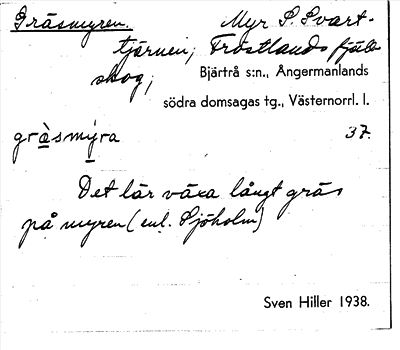 Gräsmyren. Myr S. Svart-
tjärnen, Frostlands fjäll-
skog,
Bjärtrå s:n., Ångermanlands
södra domsagas tg., Västernorrl. l.
gràsmýra 37.
Det lär växa långt gräs
på myren (enl. Sjöholm)
Sven Hiller 1938.